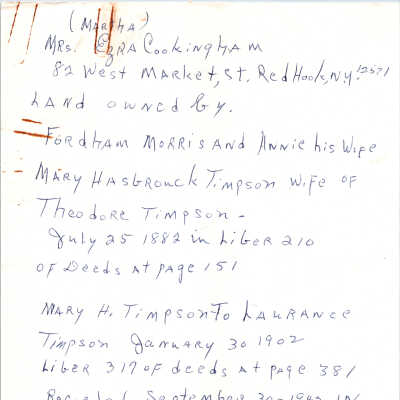 (Martha)
Mrs. Ezra Cookingham
82 West Market, St. Red Hook, N.Y. 12571
Land owned by.
Fordham Morris And Annie his Wife
Mary Hasbrouck Timpson wife of
Theodore Timpson -
July 25 1882 in Liber 210
of Deeds at page 151
Mary H. Timpson To Laurance
Timpson January 30 1902
Liber 317 of deeds at page 381
September